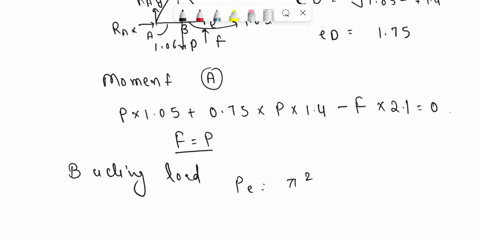 RAx A B
1.05 P F
eD = 1.75
Moment (A)
P×1.05 + 0.75 × P × 1.4 − F × 2.1 = 0
F = P
Buckling load Pe: π²